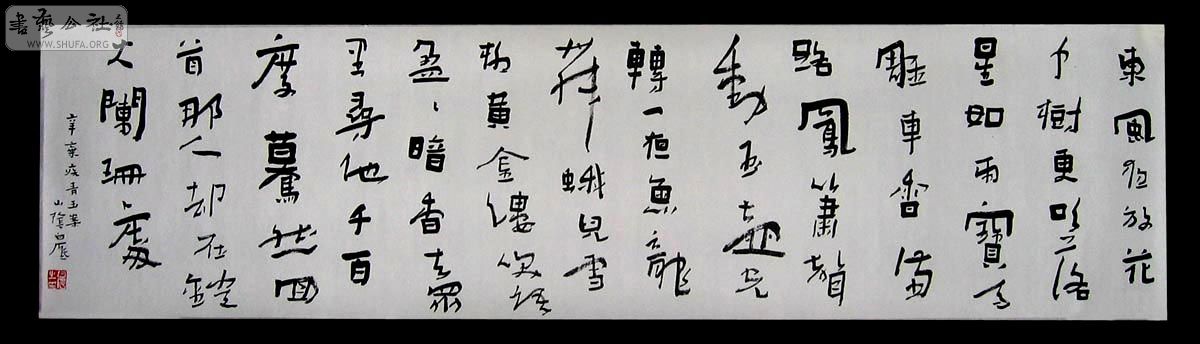 書藝公社
WWW.SHUFA.ORG
東風夜放花
千樹更吹落
星如雨寶馬
雕車香滿
路鳳簫聲
動玉壺光
轉一夜魚龍
舞蛾兒雪
柳黃金縷笑語
盈、暗香去眾
里尋他千百
度驀然回
首那人却在燈
火闌珊處
辛棄疾青玉案
山陰